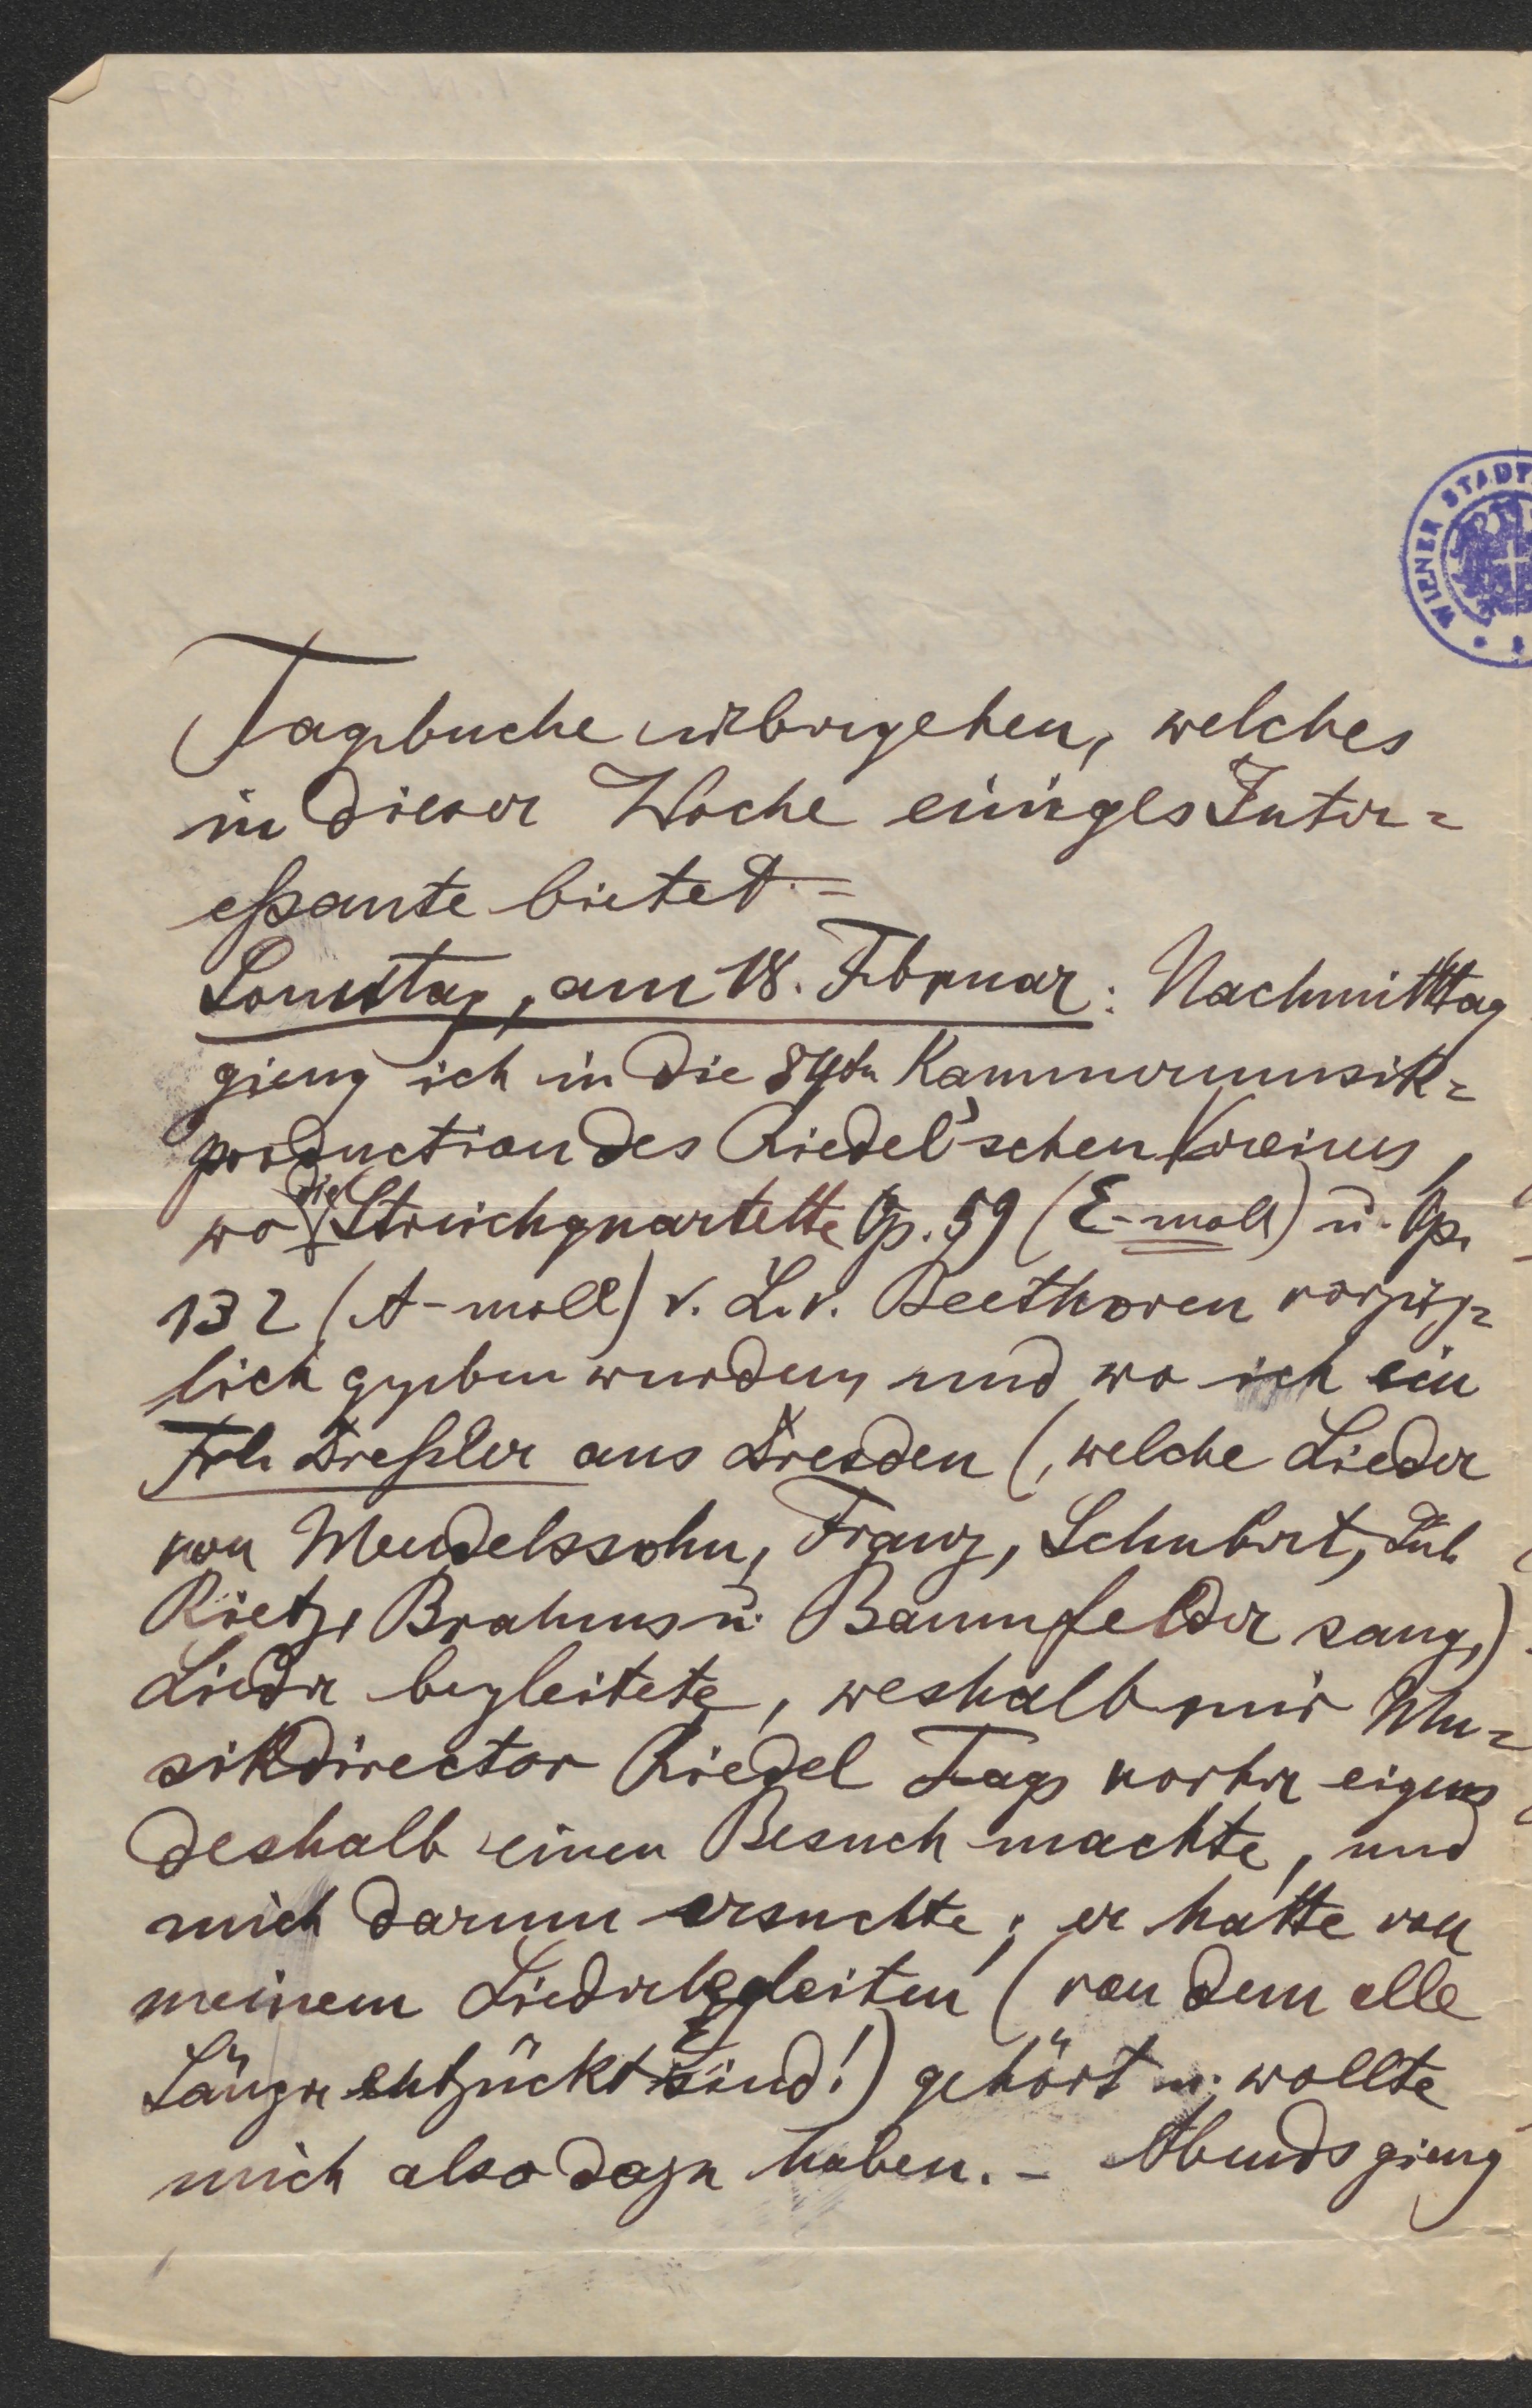 WIENER STADT
Tagebuche übergehen, welches
in dieser Woche einiges Inter=
eßante bietet. =
Sonntag, am 18. Februar: Nachmitttag
gieng ich in die 84te Kammermusik=
production des Riedel'schen Vereines,
wo die Streichquartette Op. 59 (E-moll) u. Op.
132 (A-moll) v. L. v. Beethoven vorzüg=
lich gegeben wurden, und wo ich ein
Frl. Dreßler aus Dresden (, welche Lieder
von Mendelssohn, Franz, Schubert, Jul.
Rietz, Brahms u. Baumfelder sang,)
Lieder begleitete, weshalb mir Mu=
sikdirector Riedel Tags vorher eigens
deshalb einen Besuch machte, und
mich darum ersuchte; er hatte von
meinem Liederbegleiten (von dem alle
Sänger entzückt sind!) gehört u. wollte
mich also dazu haben. - Abends gieng